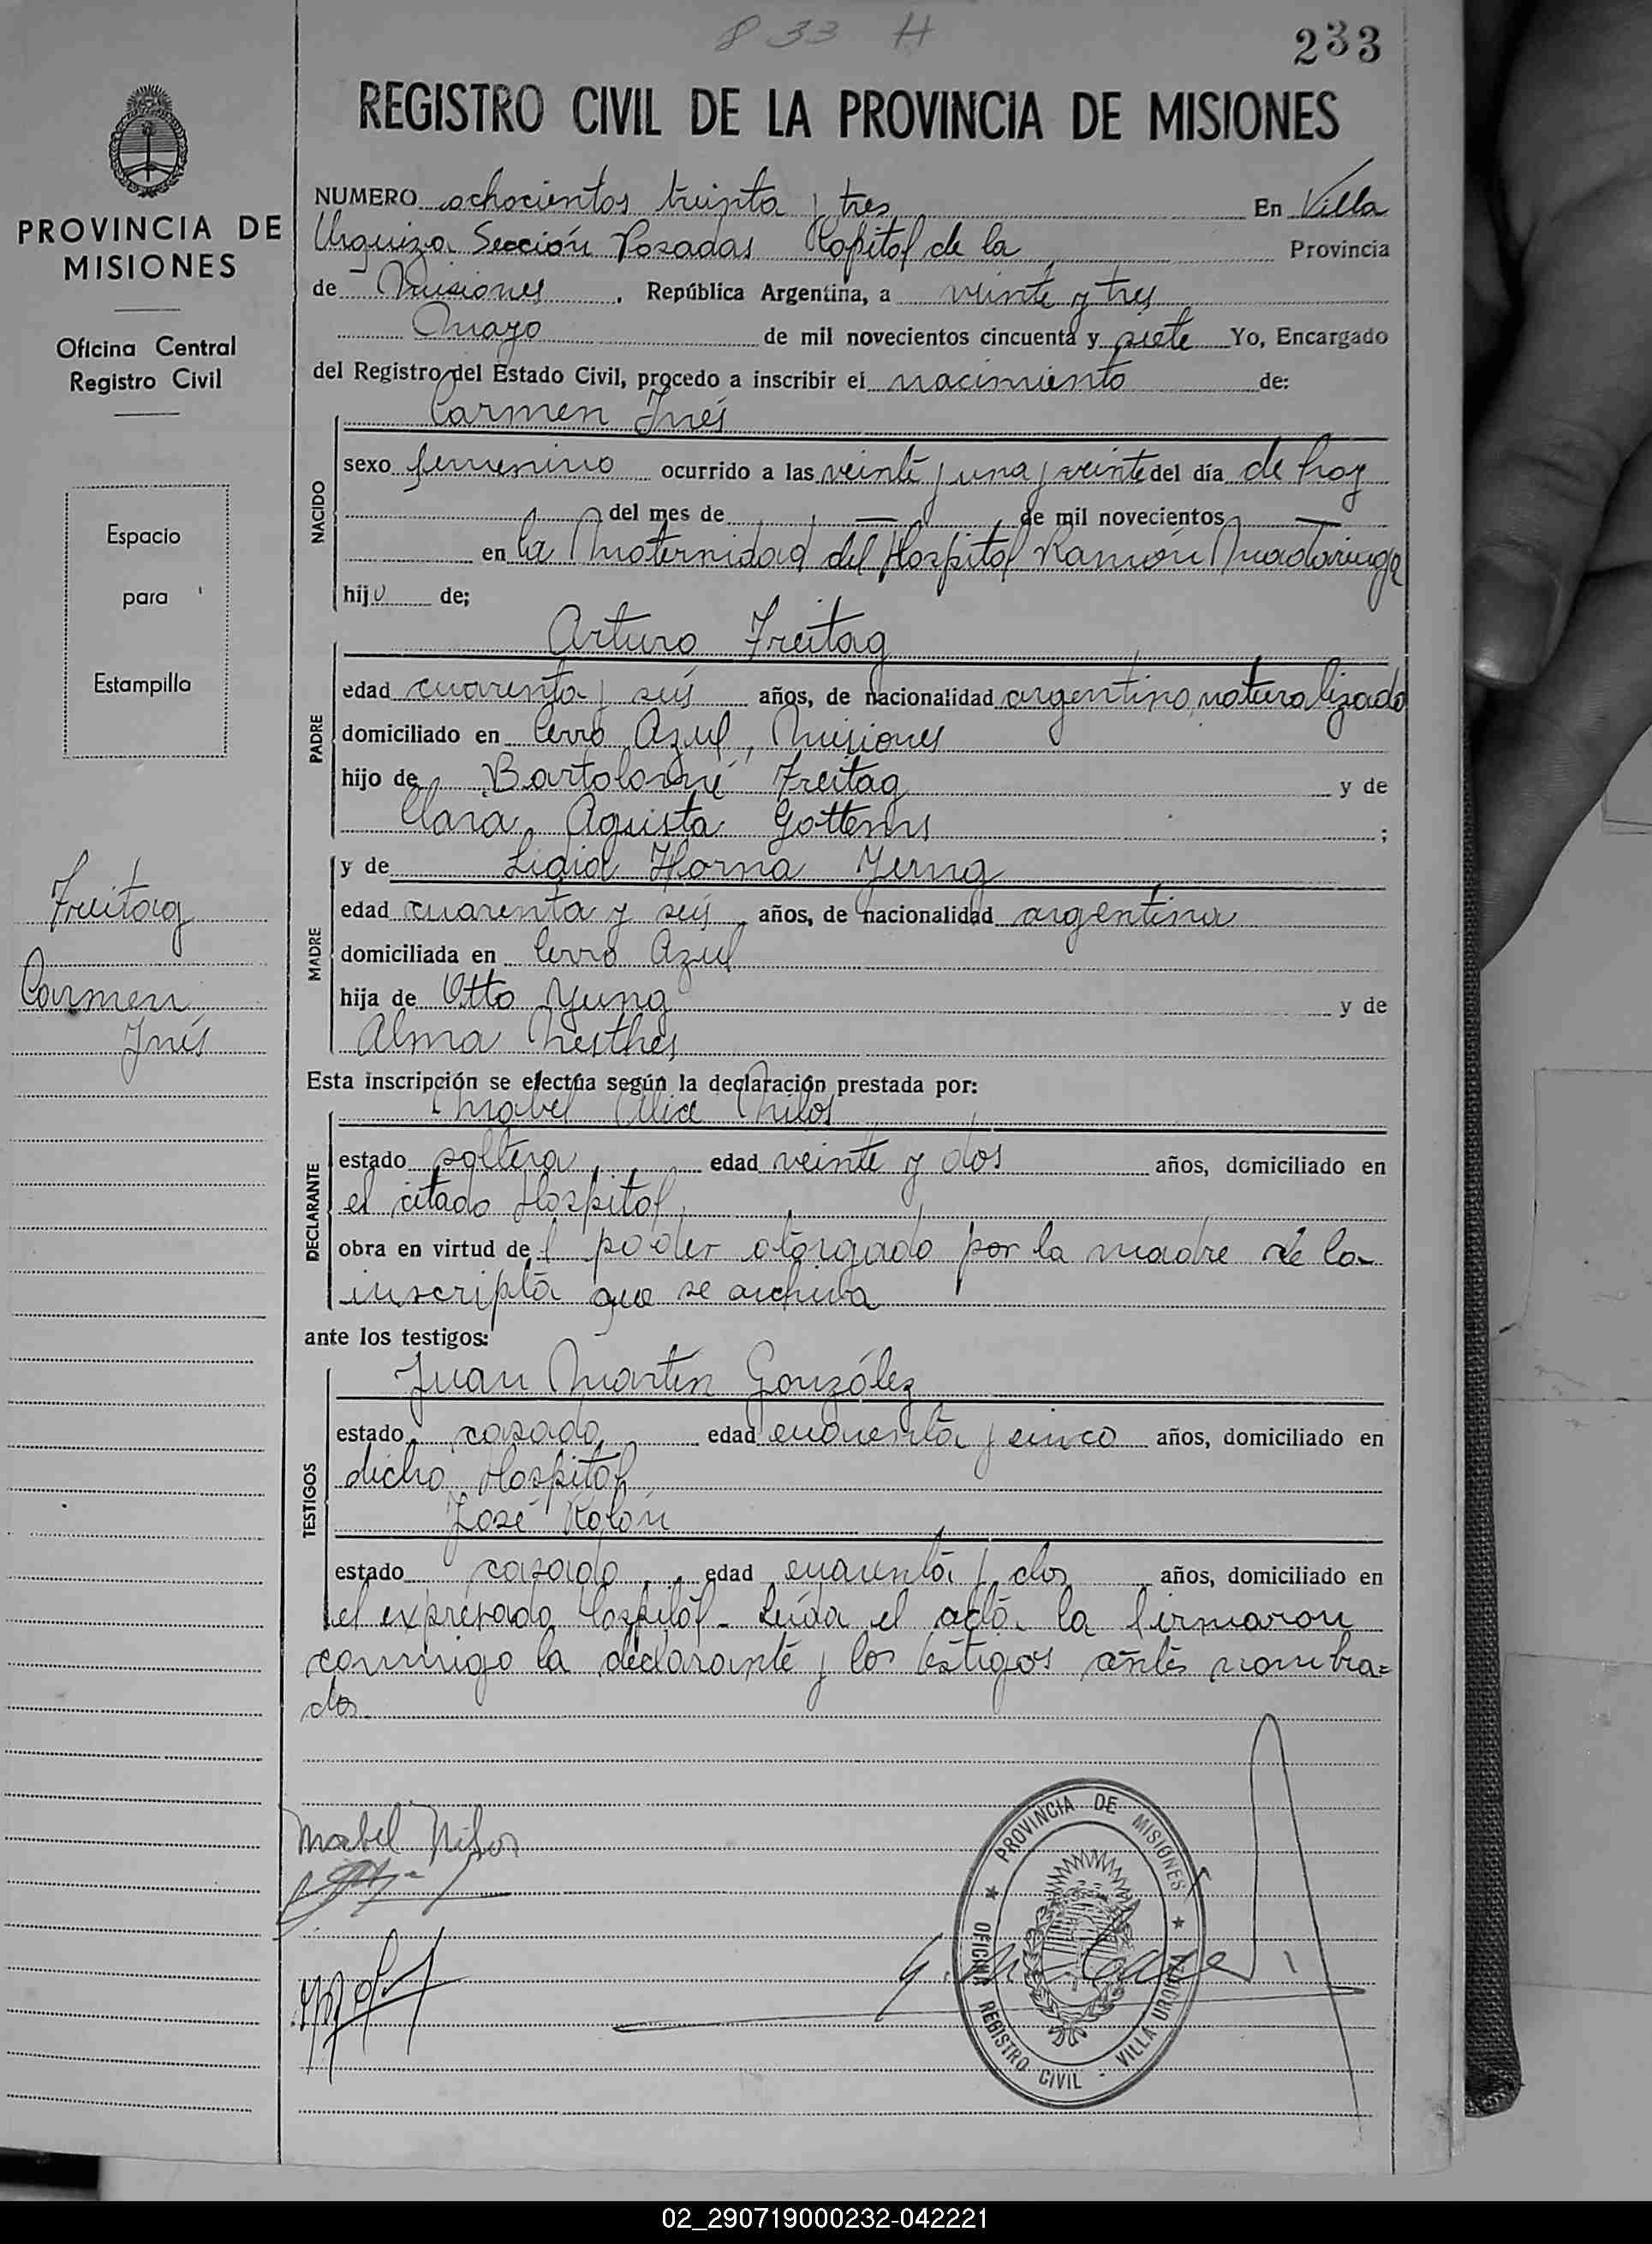 8 33 H
233
REGISTRO CIVIL DE LA PROVINCIA DE MISIONES
PROVINCIA DE
MISIONES
Oficina Central
Registro Civil
Espacio
para
Estampilla
Freitag
Carmen
Inés
NUMERO ochocientos treinta y tres En Villa
Urquiza Sección Posadas Capital de la Provincia
de Misiones, República Argentina, a veinte y tres
Mayo de mil novecientos cincuenta y siete Yo, Encargado
del Registro del Estado Civil, procedo a inscribir el nacimiento de:
Carmen Inés
NACIDO
sexo femenino ocurrido a las veinte y una y veinte del día de hoy
del mes de — de mil novecientos —
en la Maternidad del Hospital Ramón Madariaga
hija de;
Arturo Freitag
PADRE
edad cuarenta y seis años, de nacionalidad argentino naturalizado
domiciliado en Cerro Azul, Misiones
hijo de Bartolomé Freitag y de
Clara Agusta Gottems ;
y de Lidia Horna Yung
MADRE
edad cuarenta y seis años, de nacionalidad argentina
domiciliada en Cerro Azul
hija de Otto Yung y de
Alma
Esta inscripción se efectúa según la declaración prestada por:
Mabel Alice Nilos
DECLARANTE
estado soltera, edad veinte y dos años, domiciliado en
el citado Hospital,
obra en virtud del poder otorgado por la madre de la
inscripta que se archiva
ante los testigos:
Juan Martín González
TESTIGOS
estado casado edad cuarenta y cinco años, domiciliado en
dicho Hospital
José Rolón
estado casado edad cuarenta y dos años, domiciliado en
el expresado Hospital - Leída el acta la firmaron
conmigo la declarante y los testigos antes nombra=
dos.
Mabel Nilos
PROVINCIA DE MISIONES
OFICINA REGISTRO CIVIL - VILLA URQUIZA
02_290719000232-042221